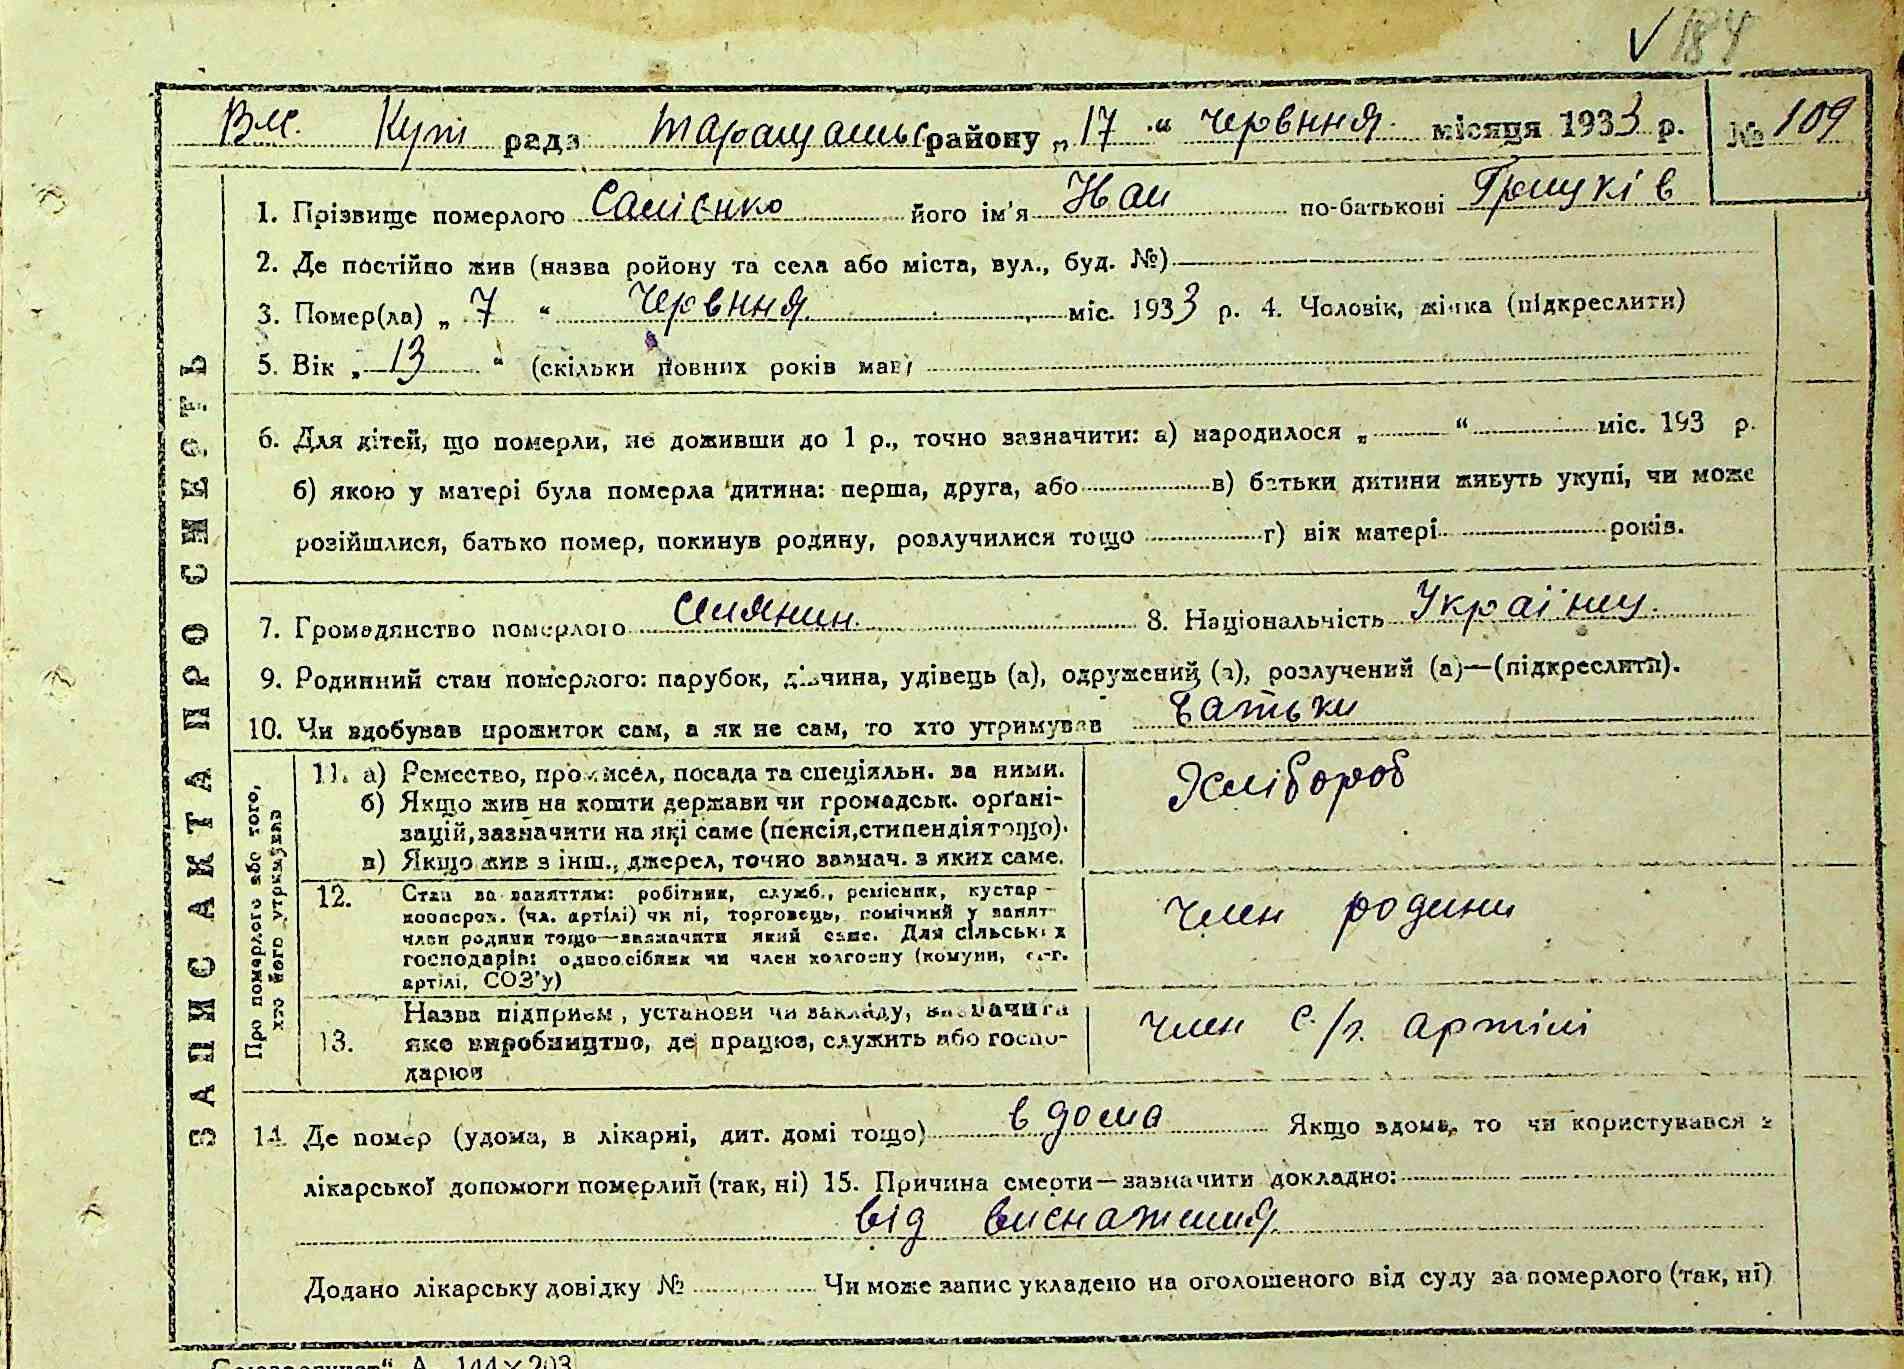 184
Вм. Купі рада Таращанськ району „17" червння місяця 1933 р. № 109
ЗАПИС АКТА ПРО СМЕРТЬ
1. Прізвище померлого його ім'я Иван по-батькові Грицків
2. Де постійно жив (назва ройону та села або міста, вул., буд. №)
3. Помер(ла) „7" червння міс. 1933 р. 4. Чоловік, жінка (підкреслити)
5. Вік „13" (скільки повних років мав)
6. Для дітей, що померли, не доживши до 1 р., точно зазначити: а) народилося „ " міс. 193 р.
б) якою у матері була померла дитина: перша, друга, або в) батьки дитини живуть укупі, чи може
розійшлися, батько помер, покинув родину, розлучилися тощо г) вік матері років.
7. Громадянство померлого селянин. 8. Національність Україну.
9. Родинний стан померлого: парубок, дівчина, удівець (а), одружений (а), розлучений (а)—(підкреслити).
10. Чи здобував прожиток сам, а як не сам, то хто утримував батьки
Про померлого або того,
хто його утримував
11. а) Ремество, промисел, посада та спеціяльн. за ними.
б) Якщо жив на кошти держави чи громадськ. орґані-
зацій, зазначити на які саме (пенсія, стипендія тощо).
в) Якщо жив з інш., джерел, точно зазнач. з яких саме.
Хлібороб
12. Стан за заняттям: робітник, служб., ремісник, кустар -
кооперов. (чл. артілі) чи ні, торговець, помічний у занят-
член родини тощо—зазначити який саме. Для сільських
господарів: одноосібник чи член колгоспу (комуни, с.-г.
артілі, СОЗ'у)
член родини
13. Назва підприєм., установи чи закладу, зазначити
яке виробництво, де працює, служить або госпо-
дарює
член с./г. артілі
14. Де помер (удома, в лікарні, дит. домі тощо) вдома Якщо вдома, то чи користувався з
лікарської допомоги померлий (так, ні) 15. Причина смерти—зазначити докладно:
від виснаження.
Додано лікарську довідку № Чи може запис укладено на оголошеного від суду за померлого (так, ні)
А 144×203